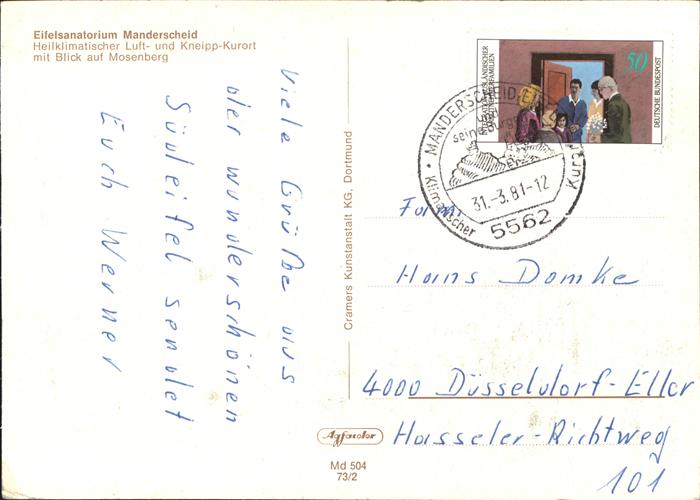 Eifelsanatorium Manderscheid
Heilklimatischer Luft- und Kneipp-Kurort
mit Blick auf Mosenberg
Viele Grüße aus
der wunderschönen
Südeifel sendet
Euch Werner
Cramers Kunstanstalt KG, Dortmund
Agfacolor
Md 504
73/2
50
DEUTSCHE BUNDESPOST
MANDERSCHEID,EIFEL
31.-3.81-12
5562
Klimatischer Kurort
Fam.
Hans Domke
4000 Düsseldorf-Eller
Hasseler-Richtweg
101